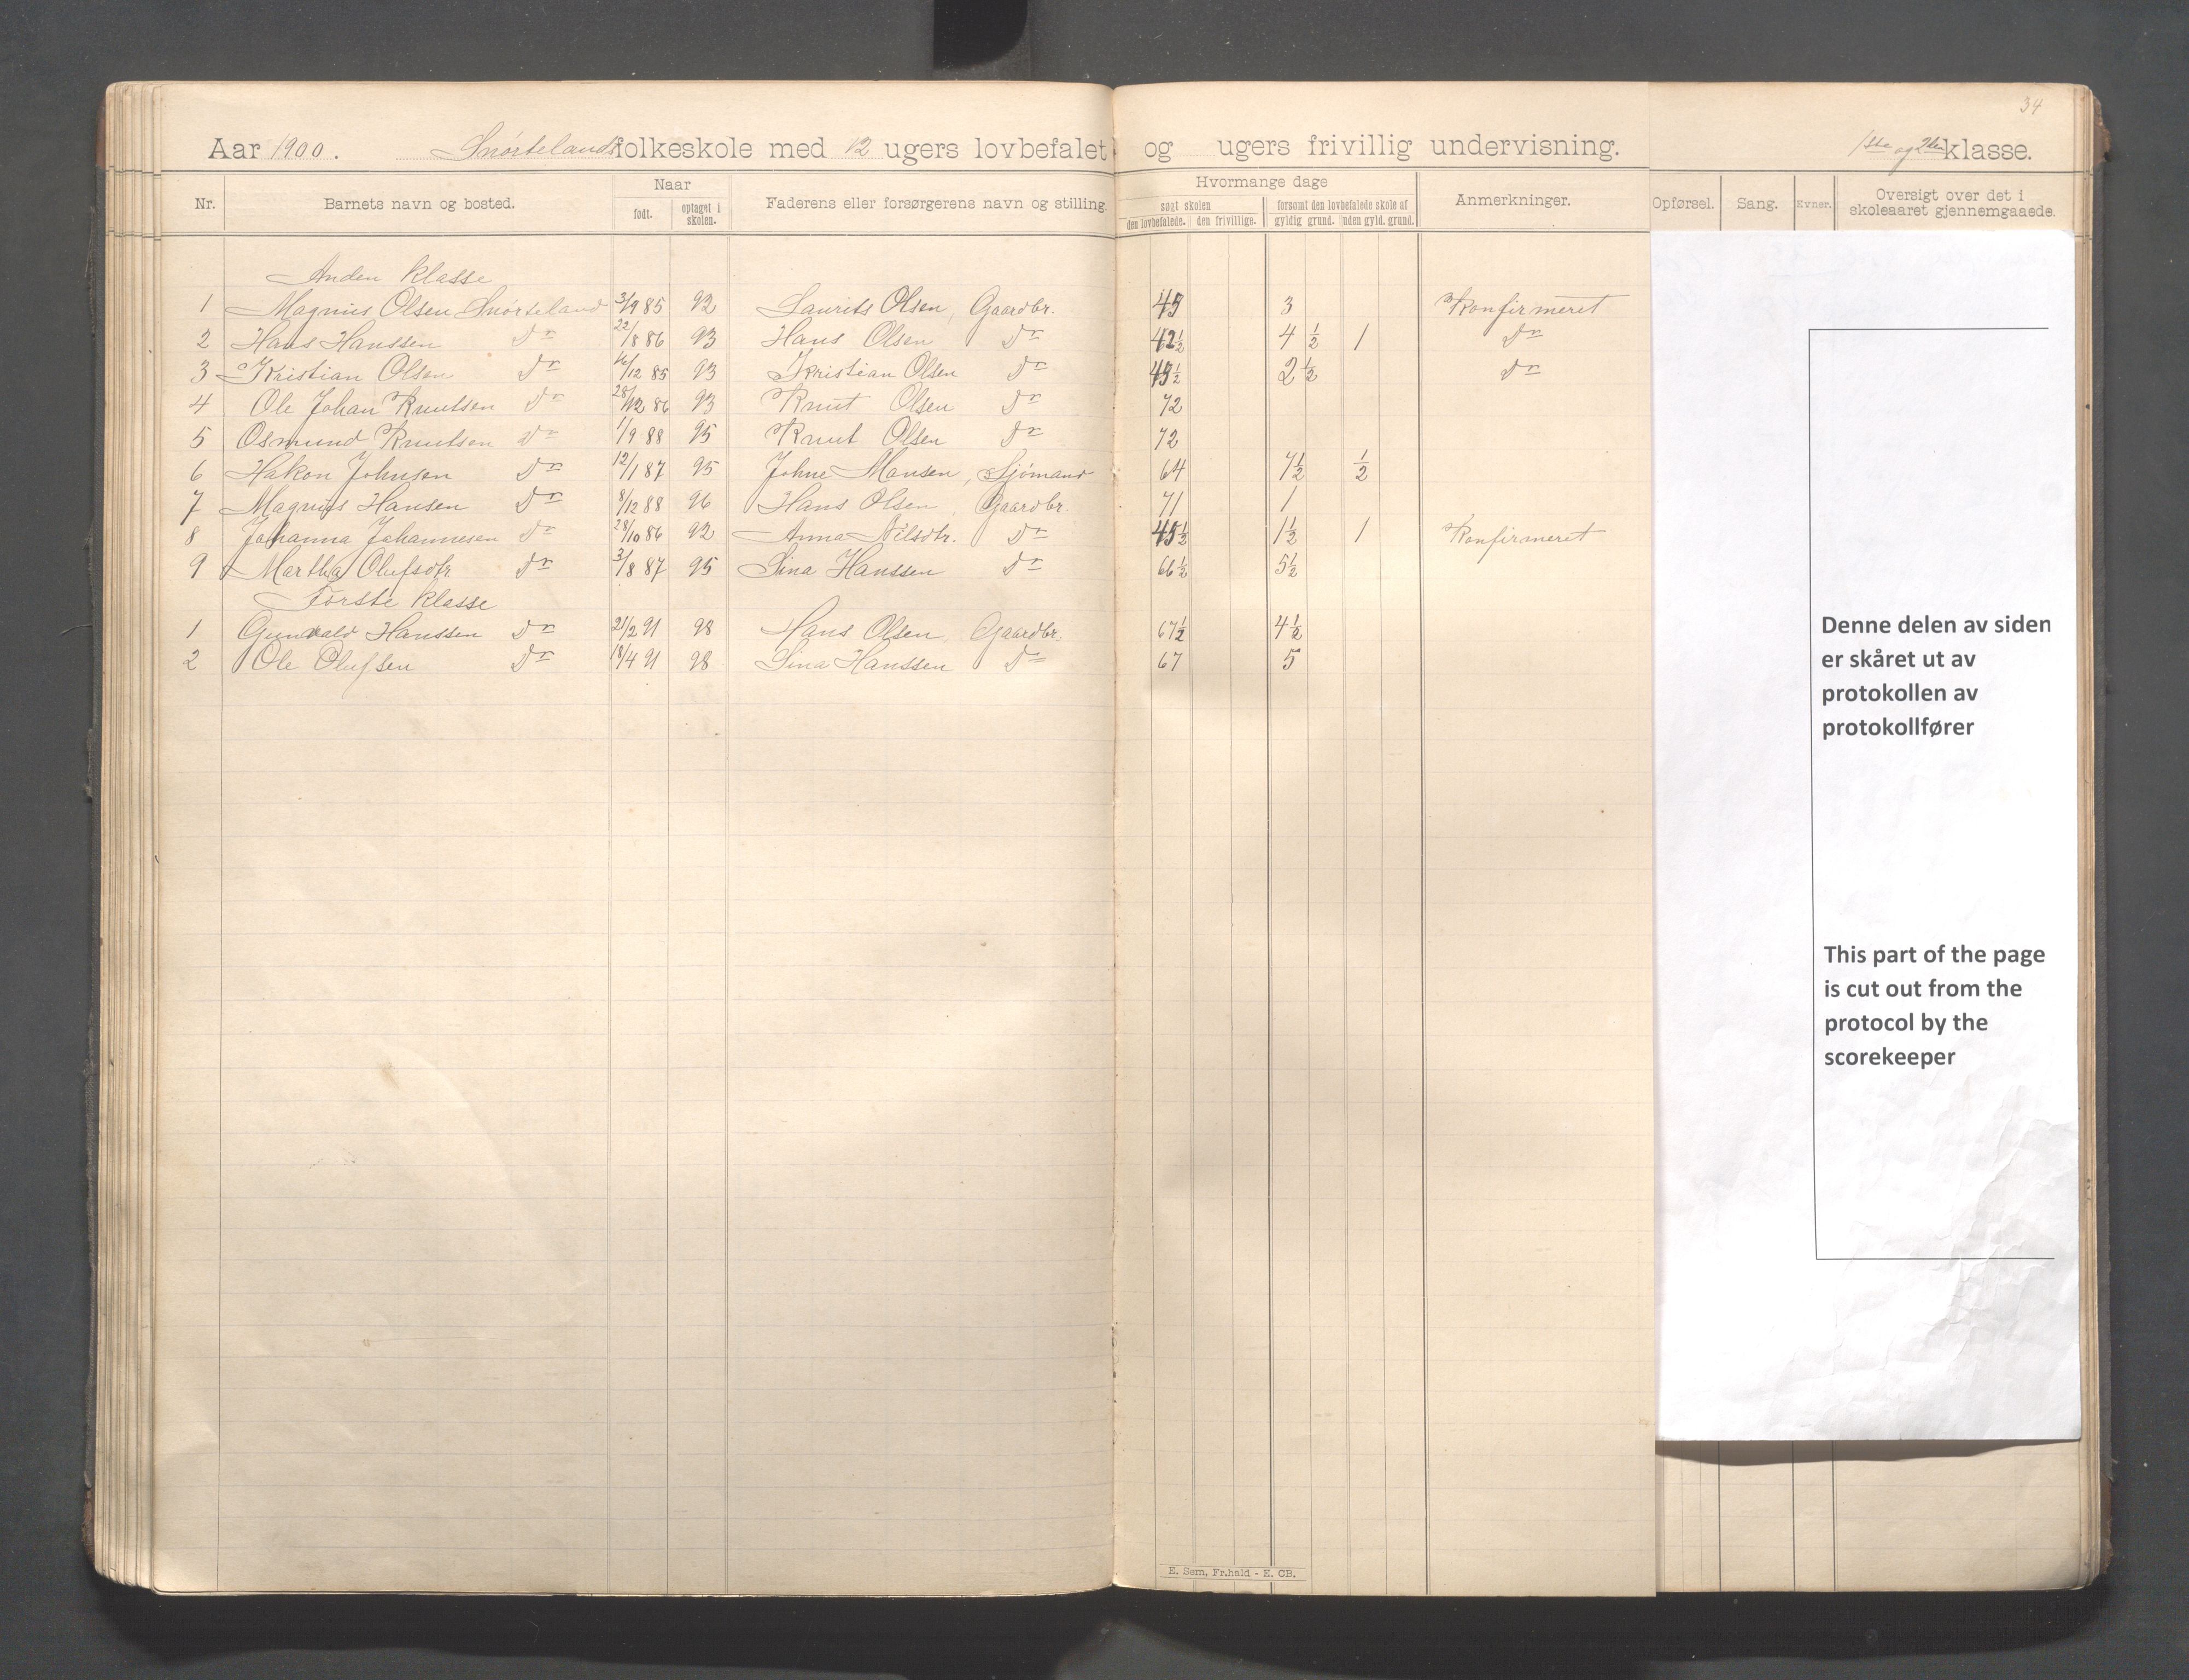 34
Aar 1900. Snørtelands folkeskole med 12 ugers lovbefalet og ugers frivillig undervisning. 1ste og 2den klasse.
Nr. Barnets navn og bosted. Naar født. optaget i skolen. Faderens eller forsørgerens navn og stilling. Hvormange dage søgt skolen den lovbefalede. den frivillige. forsømt den lovbefalede skole af gyldig grund. uden gyld. grund. Anmerkninger. Opførsel. Sang. Evner. Oversigt over det i skoleaaret gjennemgaaede.
Anden klasse
1 Magnus Olsen Snørteland 3/9 85 92 Laurits Olsen, Gaardbr. 45 3 Konfirmeret
2 Hans Hanssen Do 22/8 86 93 Hans Olsen Do 42 1/2 4 1/2 1 Do
3 Kristian Olsen Do 16/12 85 93 Kristian Olsen Do 45 1/2 2 1/2 Do
4 Ole Johan Knutsen Do 28/12 86 93 Knut Olsen Do 72
5 Osmund Knutsen Do 1/9 88 95 Knut Olsen Do 72
6 Hakon Johnsen Do 12/1 87 95 Johne Monsen, Sjømand 64 7 1/2 1/2
7 Magnus Hansen Do 8/12 88 96 Hans Olsen, Gaardbr. 71 1
8 Johanna Johannesen Do 28/10 86 92 Anna Nilsdtr. Do 45 1/2 1 1/2 1 Konfirmeret
9 Martha Olufsdtr. Do 3/8 87 95 Sina Hanssen Do 66 1/2 5 1/2
Første klasse
1 Gunvald Hanssen Do 21/2 91 98 Hans Olsen, Gaardbr. 67 1/2 4 1/2
2 Ole Olufsen Do 18/4 91 98 Sina Hanssen Do 67 5
Denne delen av siden
er skåret ut av
protokollen av
protokollfører
This part of the page
is cut out from the
protocol by the
scorekeeper
E. Sem, Fr.hald - E. CB.